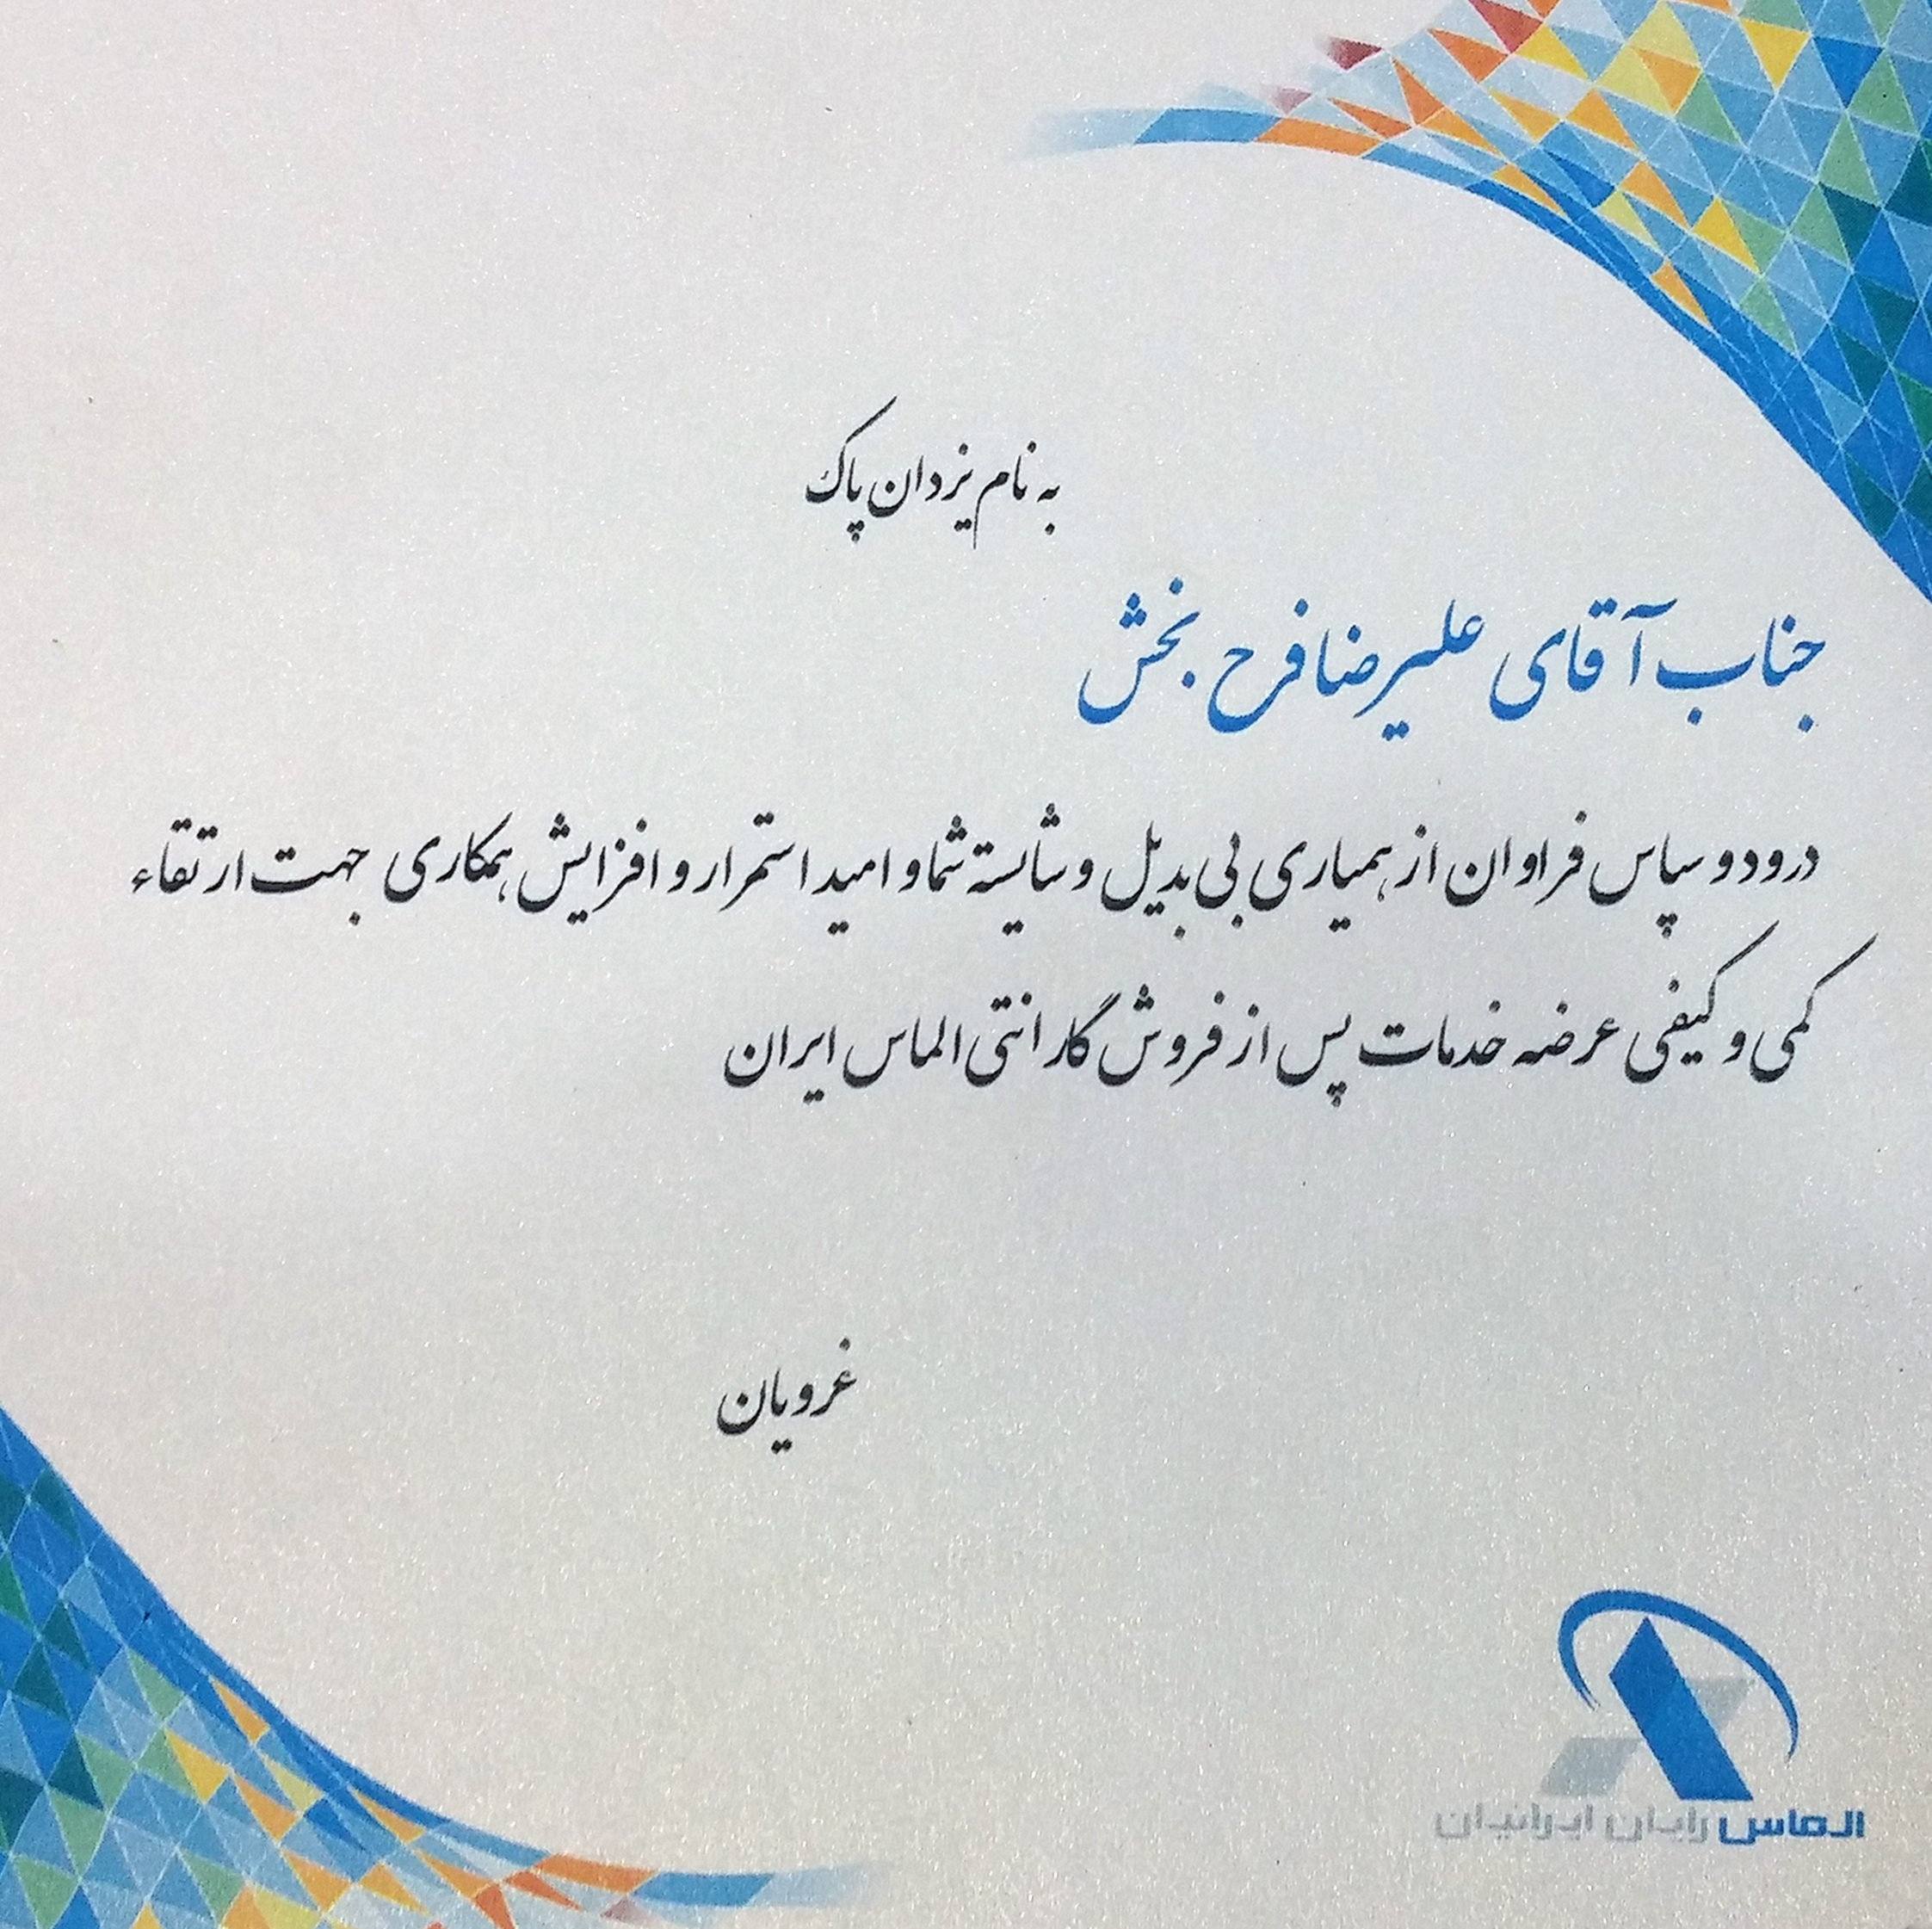 به نام یزدان پاک
جناب آقای علیرضا فرح بخش
درود و سپاس فراوان از همیاری بی بدیل و شایسته شما و امید استمرار و افزایش همکاری جهت ارتقاء
کمی و کیفی عرضه خدمات پس از فروش گارانتی الماس ایران
غرویان
الماس رایان ایرانیان